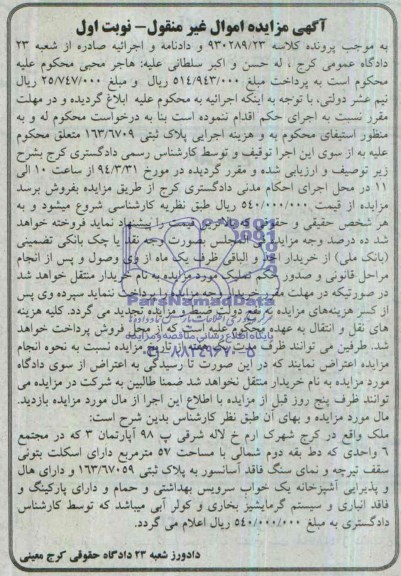 آگهی مزایده اموال غیر منقول- نوبت اول
به موجب پرونده کلاسه ۹۳۰۲۸۹/۲۳ و دادنامه و اجرائیه صادره از شعبه ۲۳
دادگاه عمومی کرج ، له حسن و اکبر سلطانی علیه: هاجر محبی محکوم علیه
محکوم است به پرداخت مبلغ ۵۱۴/۹۴۳/۰۰۰ ریال و مبلغ ۲۵/۷۴۷/۰۰۰ ریال
نیم عشر دولتی، با توجه به اینکه اجرائیه به محکوم علیه ابلاغ گردیده و در مهلت
مقرر نسبت به اجرای حکم اقدام ننموده است بنا به درخواست محکوم له و به
منظور استیفای محکوم به و هزینه اجرایی پلاک ثبتی ۱۶۳/۶۷۰۹ متعلق محکوم
علیه به از سوی این اجرا توقیف و توسط کارشناس رسمی دادگستری کرج بشرح
زیر توصیف و ارزیابی شده و مقرر گردیده در مورخ ۹۴/۳/۳۱ از ساعت ۱۰ الی
۱۱ در محل اجرای احکام مدنی دادگستری کرج از طریق مزایده بفروش برسد
مزایده از قیمت ۵۴۰/۰۰۰/۰۰۰ ریال طبق نظریه کارشناسی شروع میشود و به
هر شخص حقیقی و حقوقی که بالاترین قیمت را پیشنهاد نماید فروخته خواهد
شد ده درصد وجه مزایده فی المجلس بصورت وجه نقد یا چک بانکی تضمینی
(بانک ملی) از خریدار اخذ و الباقی ظرف یک ماه از وی وصول و پس از انجام
مراحل قانونی و صدور سند تملیک مورد مزایده به نام خریدار منتقل خواهد شد
در صورتیکه در مهلت مقرر خریدار وجه مزایده را پرداخت ننماید سپرده وی پس
از کسر هزینه‌های مزایده به نفع دولت ضبط و مزایده تجدید می گردد. کلیه هزینه
های نقل و انتقال به عهده محکوم علیه است که از محل فروش پرداخت خواهد
شد. طرفین می توانند ظرف مدت یک هفته از تاریخ مزایده نسبت به نحوه انجام
مزایده اعتراض نمایند که در این صورت تا رسیدگی به اعتراض از سوی دادگاه
مورد مزایده به نام خریدار منتقل نخواهد شد ضمنا طالبین به شرکت در مزایده می
توانند ظرف پنج روز قبل از مزایده با اطلاع این اجرا از مال مورد مزایده بازدید.
مال مورد مزایده و بهای آن طبق نظر کارشناس بدین شرح است:
ملک واقع در کرج شهرک ارم خ لاله شرقی پ ۹۸ آپارتمان ۳ که در مجتمع
۶ واحدی که دط بقه دوم شمالی با مساحت ۵۷ مترمربع دارای اسکلت بتونی
سقف تیرچه و نمای سنگ فاقد آسانسور به پلاک ثبتی ۱۶۳/۶۷۰۵۹ و دارای هال
و پذیرایی آشپزخانه یک خواب سرویس بهداشتی و حمام و دارای پارکینگ و
فاقد انباری و سیستم گرمایشیز بخاری و کولر آبی میباشد که توسط کارشناس
دادگستری به مبلغ ۵۴۰/۰۰۰/۰۰۰ ریال اعلام می گردد.
دادورز شعبه ۲۳ دادگاه حقوقی کرج معینی
ParsNamadData
پایگاه اطلاع رسانی مناقصه و مزایده
۰۲۱-۸۸۳۴۹۶۷۰-۵